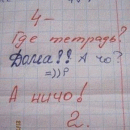 4-
Где тетрадь?
Дома?? А чо?
=))?
А ничо!
2.